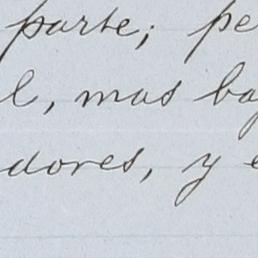 parte; pe
l, mas ba
dores, y e